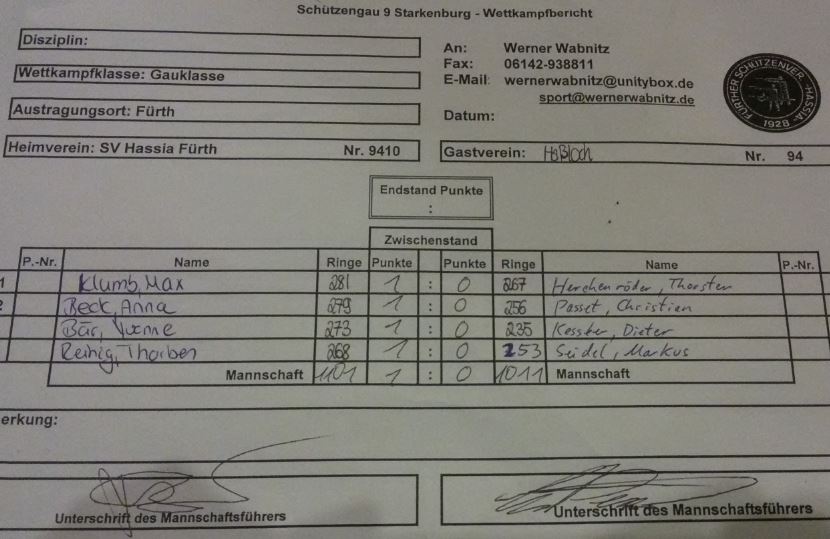 Schützengau 9 Starkenburg - Wettkampfbericht
Disziplin:
Wettkampfklasse: Gauklasse
Austragungsort: Fürth
Heimverein: SV Hassia Fürth Nr. 9410
An: Werner Wabnitz
Fax: 06142-938811
E-Mail: wernerwabnitz@unitybox.de
sport@wernerwabnitz.de
Datum:
FÜRTHER SCHÜTZENVER. HASSIA 1928
Gastverein: Haßloch Nr. 94
Endstand Punkte
:
Zwischenstand
P.-Nr. Name Ringe Punkte Punkte Ringe Name P.-Nr.
1 Klumb, Max 281 1 : 0 267 Herchenröder, Thorsten
2 Beck, Anna 279 1 : 0 256 Passet, Christian
Bär, Yvonne 273 1 : 0 235 Kessler, Dieter
Reinig, Thorben 268 1 : 0 253 Seidel, Markus
Mannschaft 1101 1 : 0 1011 Mannschaft
erkung:
Unterschrift des Mannschaftsführers
Unterschrift des Mannschaftsführers